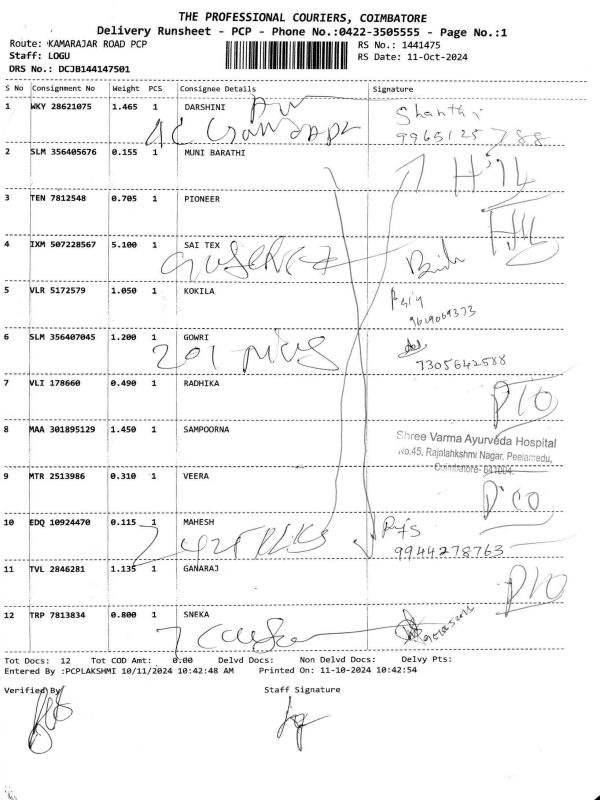 THE PROFESSIONAL COURIERS, COIMBATORE
Delivery Runsheet - PCP - Phone No.:0422-3505555 - Page No.:1
Route: KAMARAJAR ROAD PCP
Staff: LOGU
DRS No.: DCJB144147501
RS No.: 1441475
RS Date: 11-Oct-2024
S No Consignment No Weight PCS Consignee Details Signature
1 WKY 28621075 1.465 1 DARSHINI
Shanthi
9965125788
2 SLM 356405676 0.155 1 MUNI BARATHI
3 TEN 7812548 0.705 1 PIONEER
4 IXM 507228567 5.100 1 SAI TEX
5 VLR 5172579 1.050 1 KOKILA
9619069373
6 SLM 356407045 1.200 1 GOWRI
7305642588
7 VLI 178660 0.490 1 RADHIKA
8 MAA 301895129 1.450 1 SAMPOORNA
Shree Varma Ayurveda Hospital
No.45, Rajalahkshmi Nagar, Peelamedu,
Coimbatore- 641004.
9 MTR 2513986 0.310 1 VEERA
10 EDQ 10924470 0.115 1 MAHESH
9944278763
11 TVL 2846281 1.135 1 GANARAJ
12 TRP 7813834 0.800 1 SNEKA
Tot Docs: 12 Tot COD Amt: 0.00 Delvd Docs: Non Delvd Docs: Delvy Pts:
Entered By :PCPLAKSHMI 10/11/2024 10:42:48 AM Printed On: 11-10-2024 10:42:54
Verified By Staff Signature